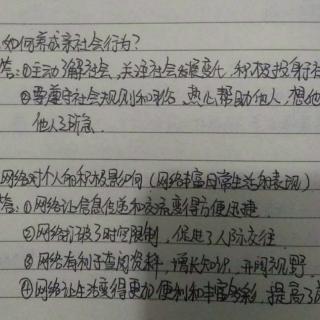 如何养成亲社会行为?
答:①主动了解社会,关注社会发展变化,积极投身于社
②要遵守社会规则和习俗,热心帮助他人,想他
他人之所急.
网络对个人的积极影响(网络丰富日常生活的表现)
答:①网络让信息传递和交流变得方便迅捷.
②网络打破了时空限制,促进了人际交往
③网络有利于查阅资料,增长知识,开阔视野.
④网络让生活变得更加便利和丰富多彩,提高了